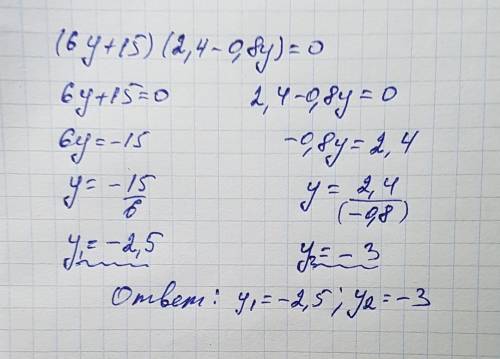 (6y+15)(2,4-0,8y)=0
6y+15=0 2,4-0,8y=0
6y=-15 -0,8y=2,4
y=-15/6 y=2,4/(-0,8)
y₁=-2,5 y₂=-3
Ответ: y₁=-2,5; y₂=-3